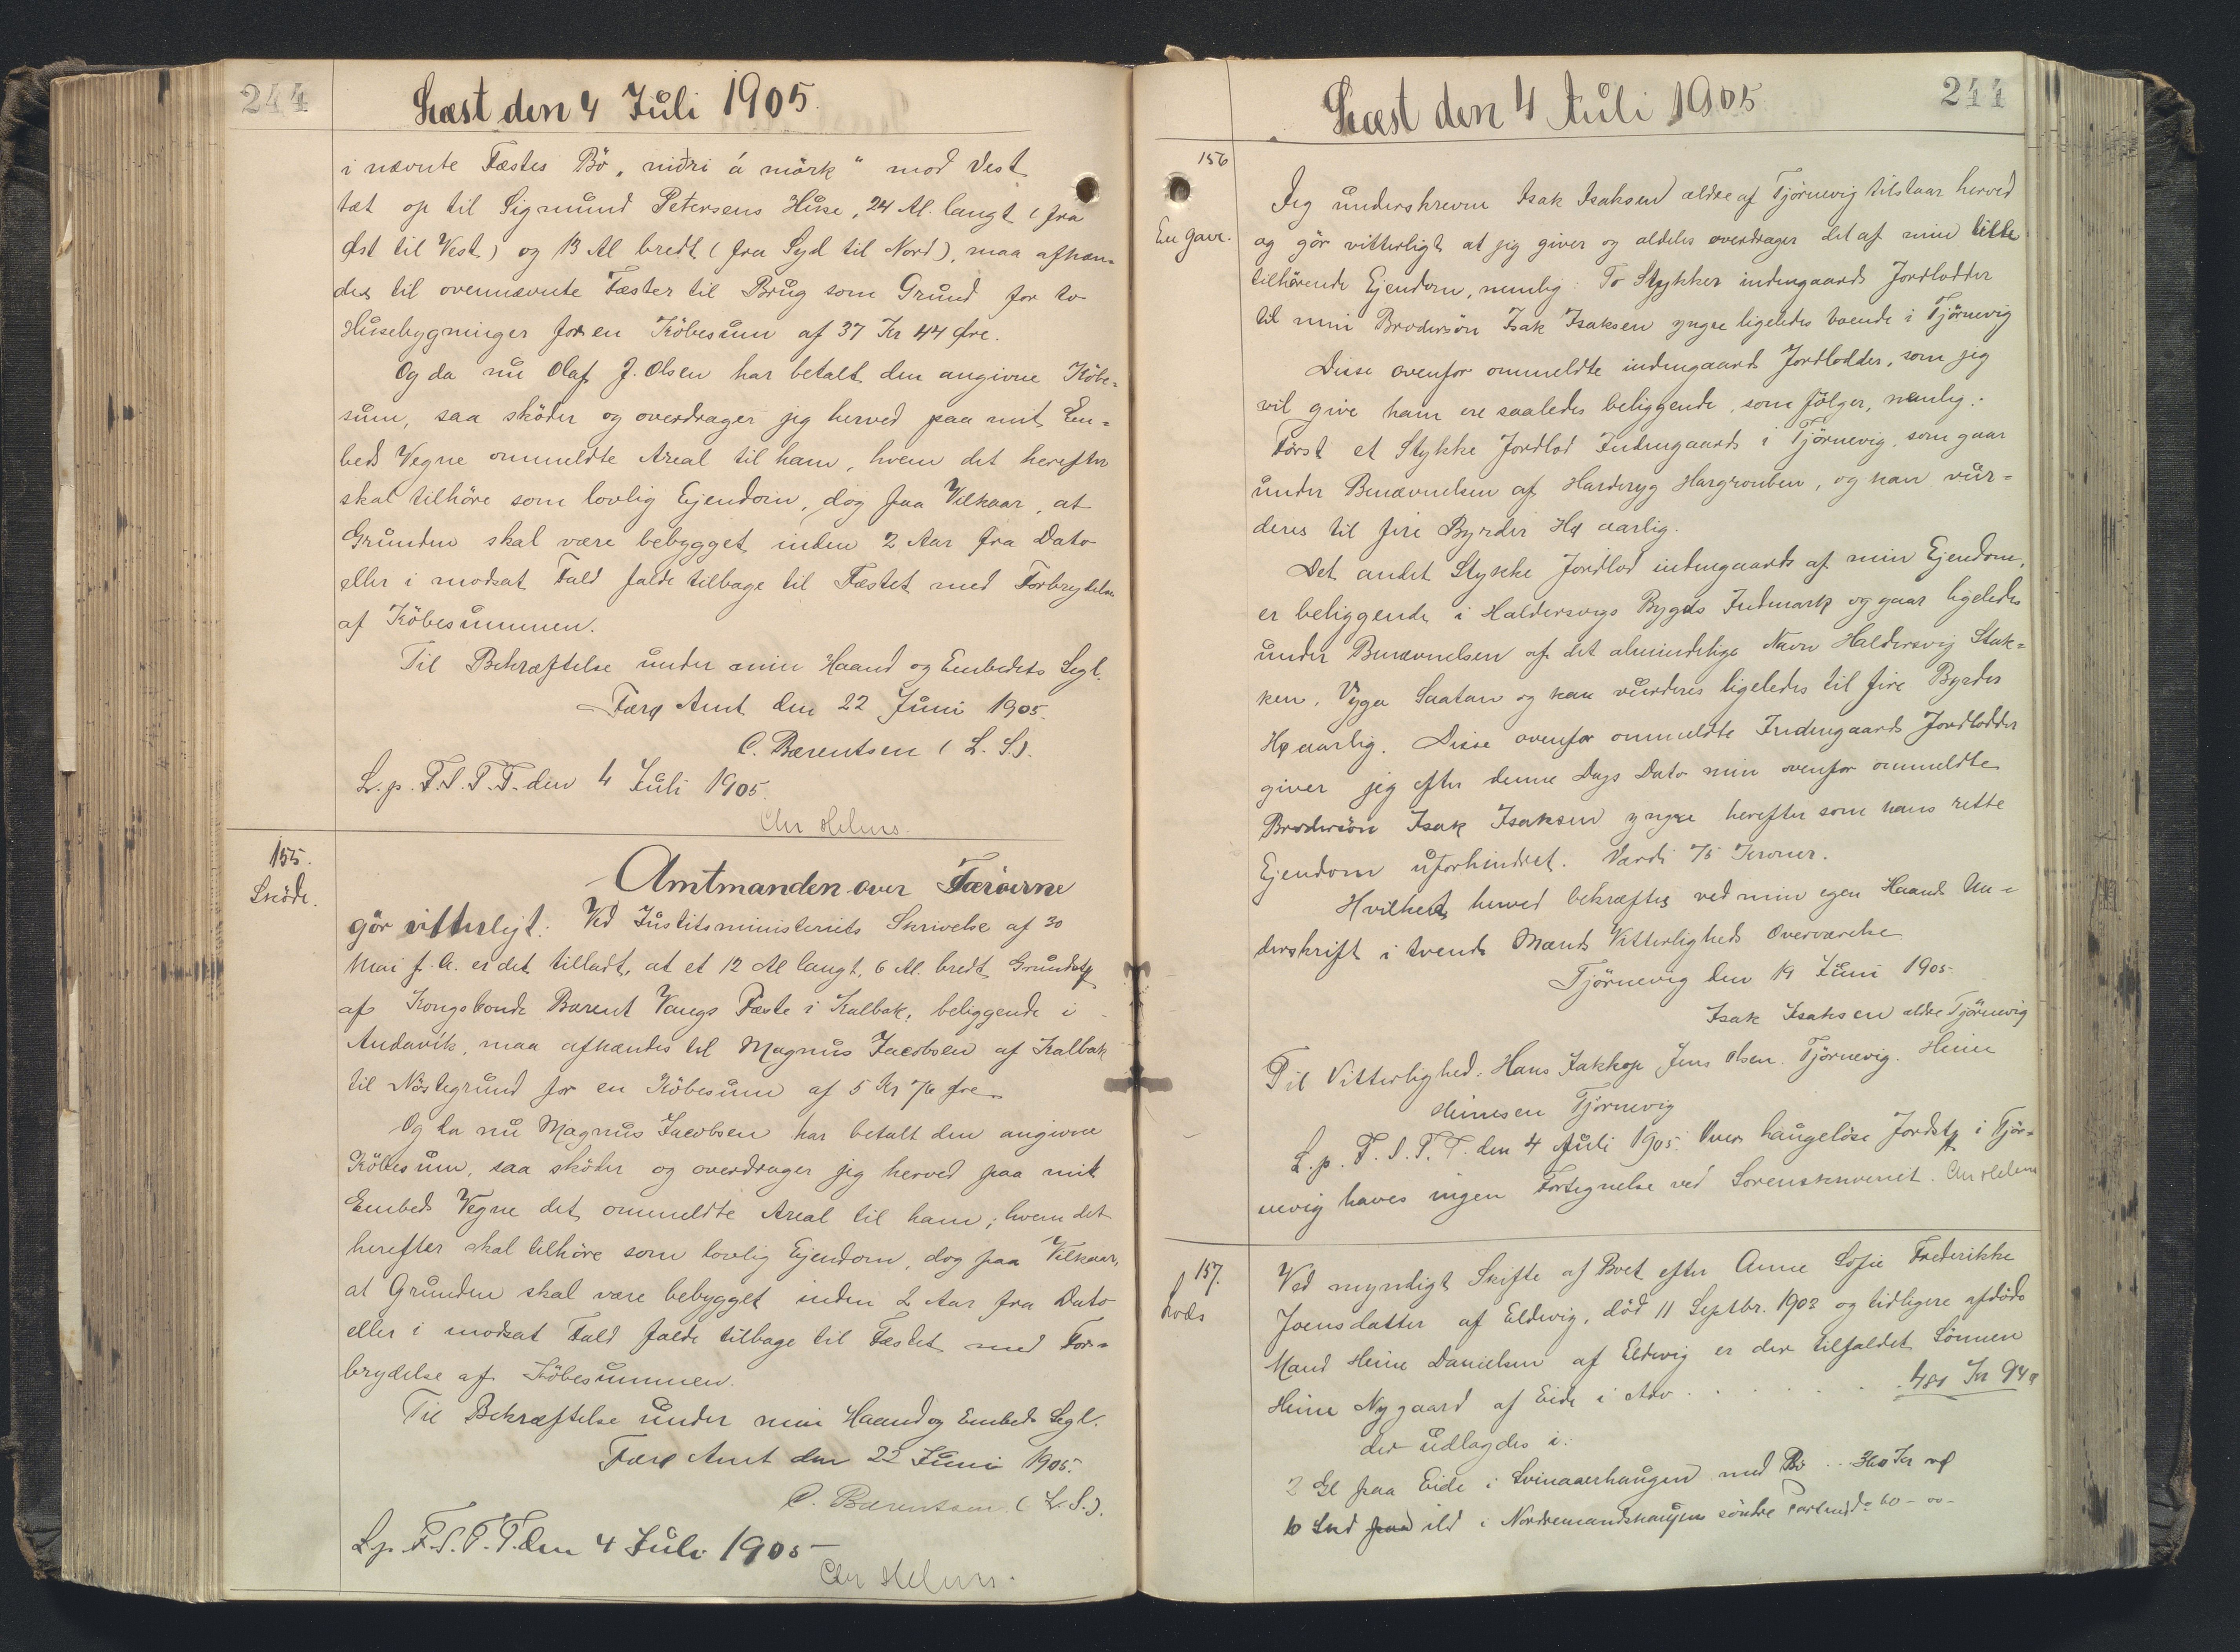 244
Læst den 4 Juli 1905.
i nævnte Fæstes Bö „niðri á mörk“ mod Vest
tæt op til Sigmund Petersens Huse, 24 Al. langt (fra
Øst til Vest) og 13 Al bredt (fra Syd til Nord), maa afhæn-
des til ovennævnte Fæster til Brug som Grund for to
Husebygninger for en Köbesum af 37 Kr 44 Øre.
Og da nu Olaf J. Olsen har betalt den angivne Köbe-
sum, saa sköder og overdrager jeg herved paa mit Em-
beds Vegne ommeldte Areal til ham, hvem det herefter
skal tilhöre som lovlig Ejendom, dog paa Vilkaar, at
Grunden skal være bebygget inden 2 Aar fra Dato
eller i modsat Fald falde tilbage til Fæstet med Forbrydelse
af Köbesummen.
Til Bekræftelse under min Haand og Embedets Segl.
Færø Amt den 22 Juni 1905.
C. Bærentsen (L. S.).
L. p. F. S. T. T. den 4 Juli 1905.
Chr Helms.
155.
Sköde.
Amtmanden over Færöerne
gör vitterligt: Ved Justitsministeriets Skrivelse af 30
Mai f. A. er det tilladt, at et 12 Al langt, 6 Al. bredt Grundstk
af Kongsbonde Bærent Vangs Fæste i Kalbak, beliggende i
Andavik, maa afhændes til Magnus Jacobsen af Kalbak
til Nöstegrund for en Köbesum af 5 Kr 76 Øre.
Og da nu Magnus Jacobsen har betalt den angivne
Köbesum, saa sköder og overdrager jeg herved paa mit
Embeds Vegne det ommeldte Areal til ham, hvem det
herefter skal tilhöre som lovlig Ejendom, dog paa Vilkaar,
at Grunden skal være bebygget inden 2 Aar fra Dato
eller i modsat Fald falde tilbage til Fæstet med For-
brydelse af Köbesummen.
Til Bekræftelse under min Haand og Embeds Segl.
Færø Amt den 22 Juni 1905.
C. Bærentsen (L. S.).
L p. F. S. T. T. den 4 Juli 1905
Chr Helms.
Læst den 4 Juli 1905
244
156
En Gave.
Jeg underskrevne Isak Isaksen ældre af Tjörnevig tilstaar herved
og gör vitterligt at jeg giver og aldeles overdrager det af min lille
tilhørende Ejendom, nemlig: To Stykker indengaards Jordlodder
til min Brodersön Isak Isaksen yngre ligeledes boende i Tjörnevig
Disse ovenfor ommeldte indengaards Jordlodder, som jeg
vil give ham ere saaledes beliggende, som fölger, nemlig:
Först et Stykke Jordlod Indengaards i Tjörnevig, som gaar
under Benævnelsen af Harderyg Hargrouben, og kan vur-
deres til fire Byrder Hø aarlig.
Det andet Stykke Jordlod indengaards af min Ejendom,
er beliggende i Haldersvigs Bygds Indmark og gaar ligeledes
under Benævnelsen af det almindelige Navn Haldersvig Stak-
ken, Vyga Saatan og kan vurderes ligeledes til fire Byrder
Hø aarlig. Disse ovenfor ommeldte Indengaards Jordlodder
giver jeg efter denne Dags Dato min ovenfor ommeldte
Brodersön Isak Isaksen yngre herefter som hans rette
Ejendom uforhindret. Værdi 75 Kroner.
Hvilket herved bekræftes ved min egen Haands Un-
derskrift i tvende Mænds Vitterligheds Overværelse.
Tjörnevig den 19 Juni 1905.
Isak Isaksen ældre Tjörnevig
Til Vitterlighed: Hans Jakkop Jens Olsen. Tjörnevig. Heine
Heinesen Tjörnevig
L. p. F. S. T. T. den 4 Juli 1905. Over haugelöse Jordstk i Tjör-
nevig haves ingen Fortegnelse ved Sorenskriveriet. Chr Helms
157.
Lods
Ved myndigt Skifte af Boet efter Anne Sofie Frederikke
Joensdatter af Eldevig, död 11 Septbr. 1903 og tidligere afdöde
Mand Heine Danielsen af Eldevig er der tilfaldet Sönnen
Heine Nygaard af Eide i Arv . . . . . . 481 Kr 94 ø
der udlagdes i:
2 Gl paa Eide i Svinaaerhaugen med Bö .. 360 Kr
10 Skd paa ild i Nordremandshaugens söndre Part med do 60 - 00 -